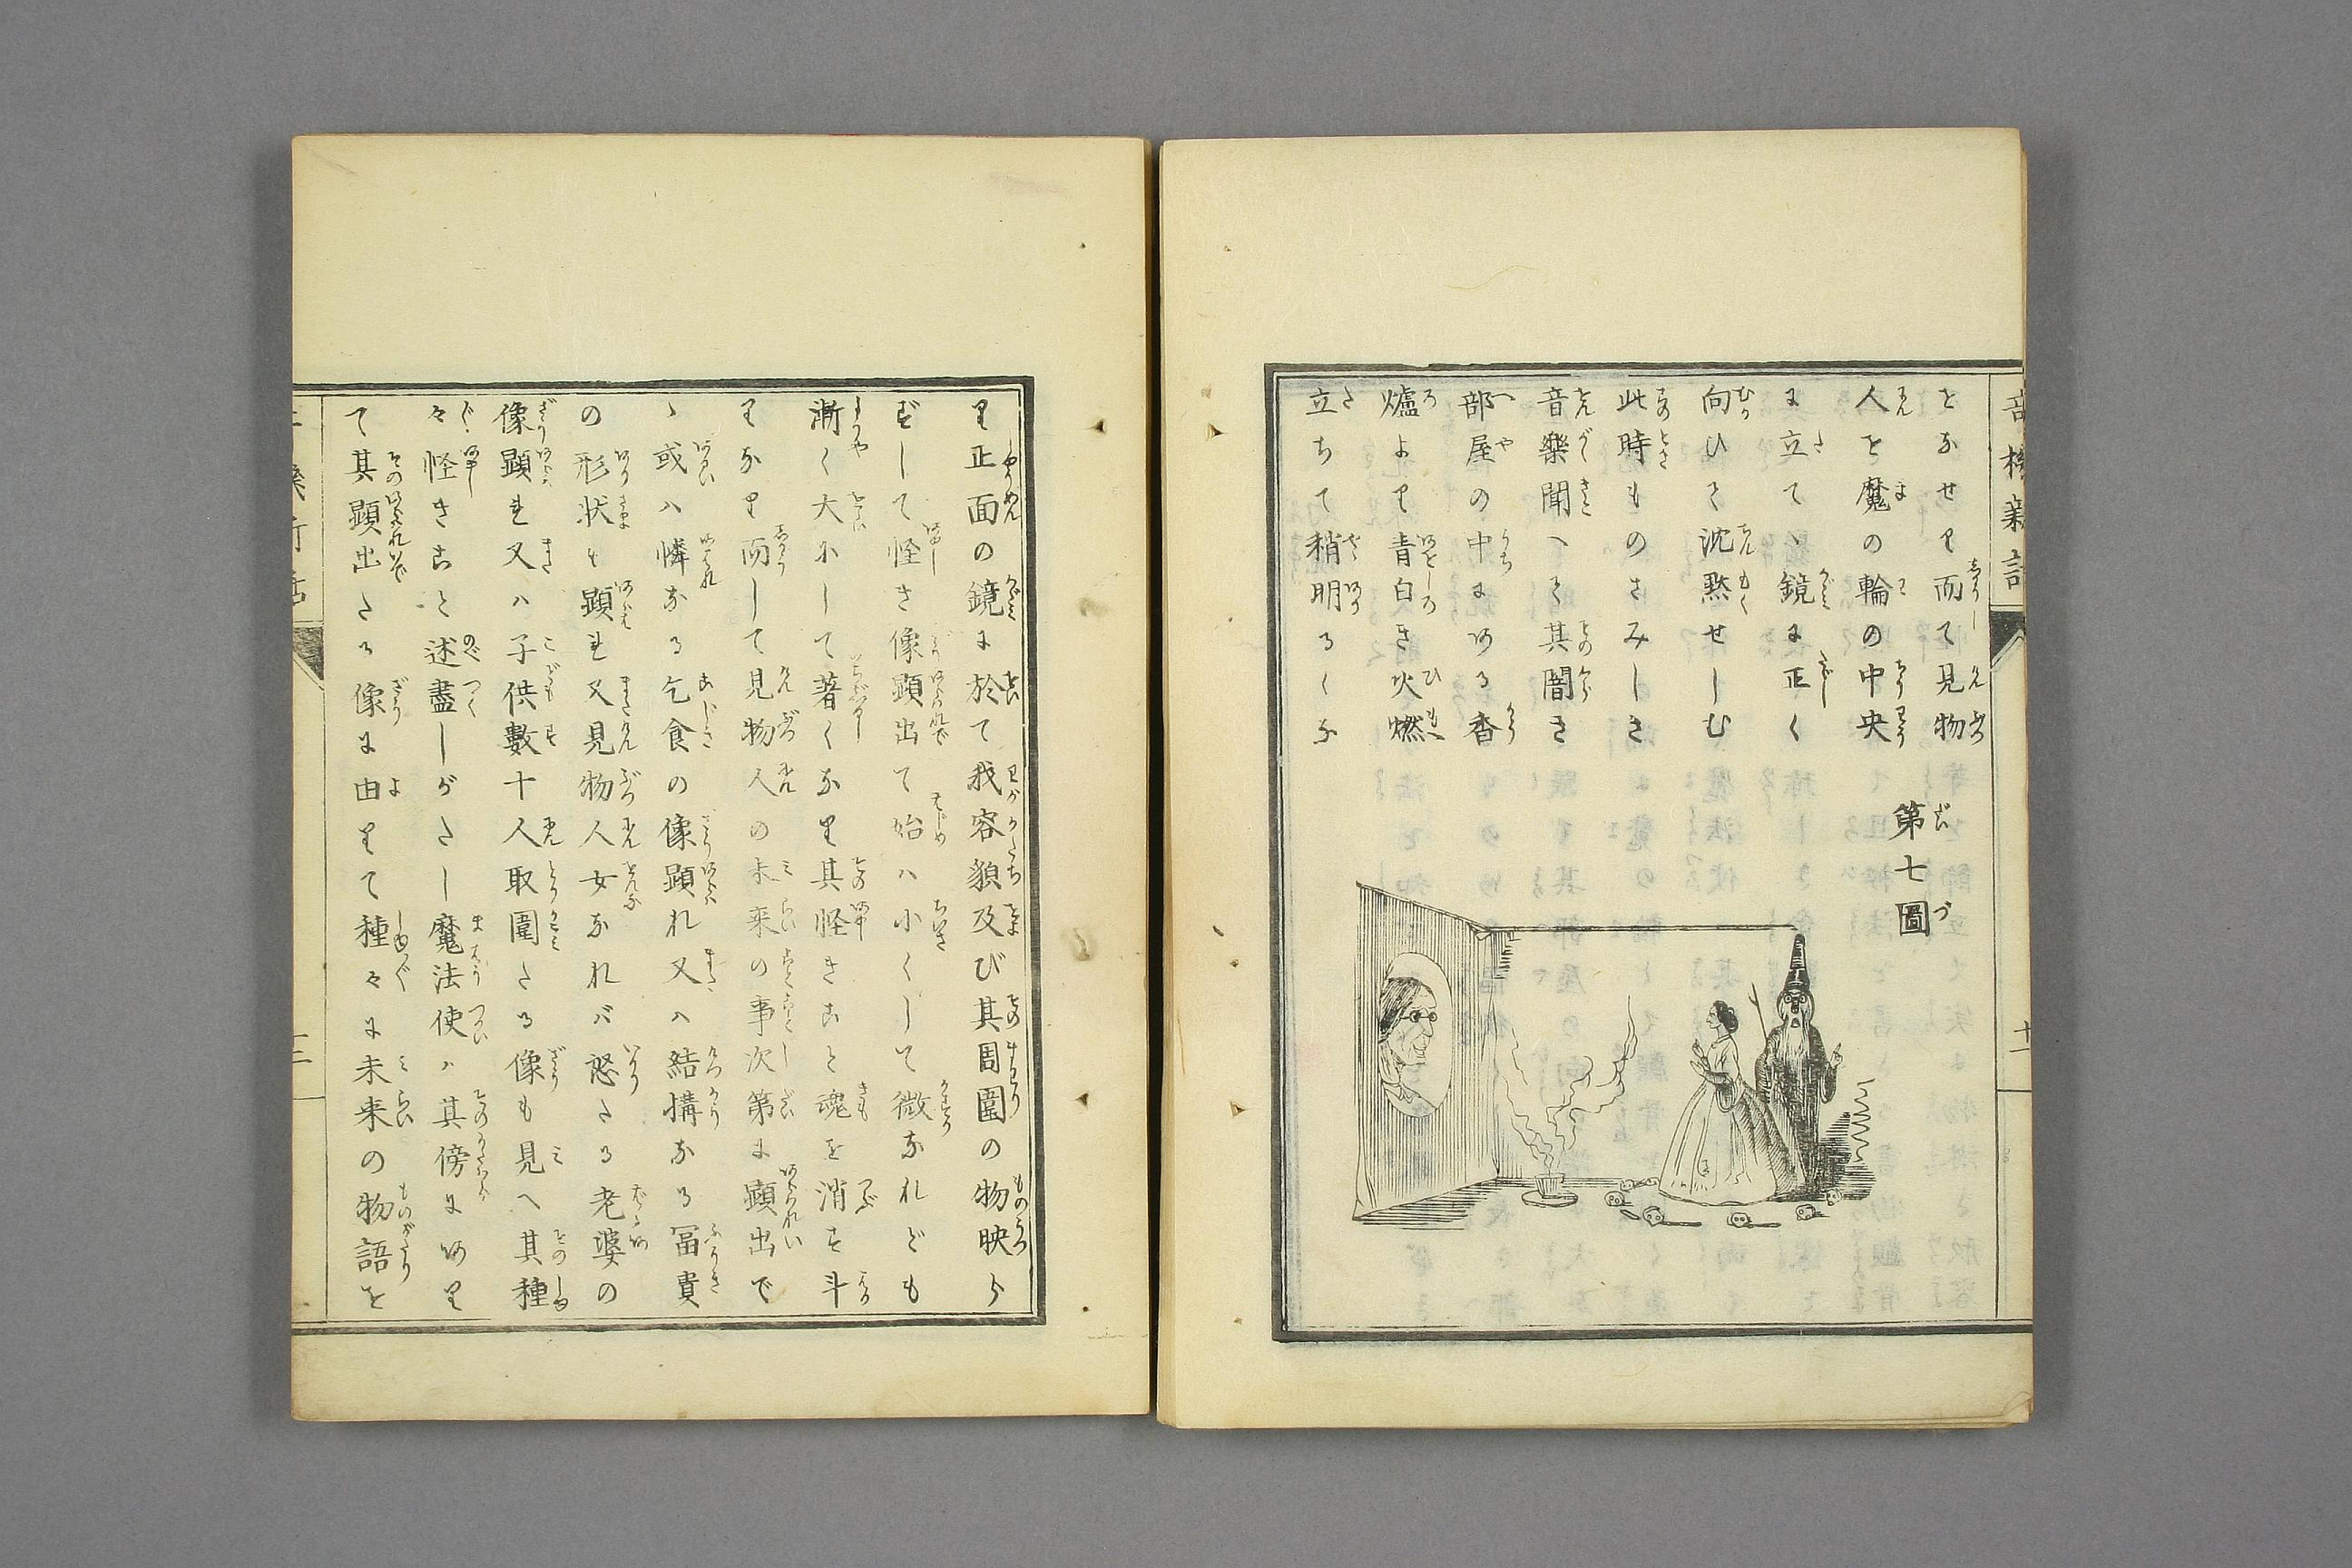 となせり而て見物
人を魔の輪の中央
に立て、鏡に正く
向ひて沈黙せしむ
此時ものさみしき
音樂聞へて其闇き
部屋の中にある香
爐より青白き火燃
立ちて稍明るくな
第七圖
り正面の鏡に於て我容貌及び其周圍の物映ら
ずして怪き像顕出て始ハ小くして微なれども
漸く大小して著くなり其怪きこと魂を消す斗
りなり而して見物人の未来の事次第に顕出で
、或ハ憐なる乞食の像顕れ又ハ結構なる冨貴
の形状も顕れ又見物人女なれバ怒たる老婆の
像顕れ又ハ子供數十人取圍たる像も見へ其種
々怪きこと述盡しがたし魔法使ハ其傍にあり
て其顕出たる像に由りて種々に未来の物語を